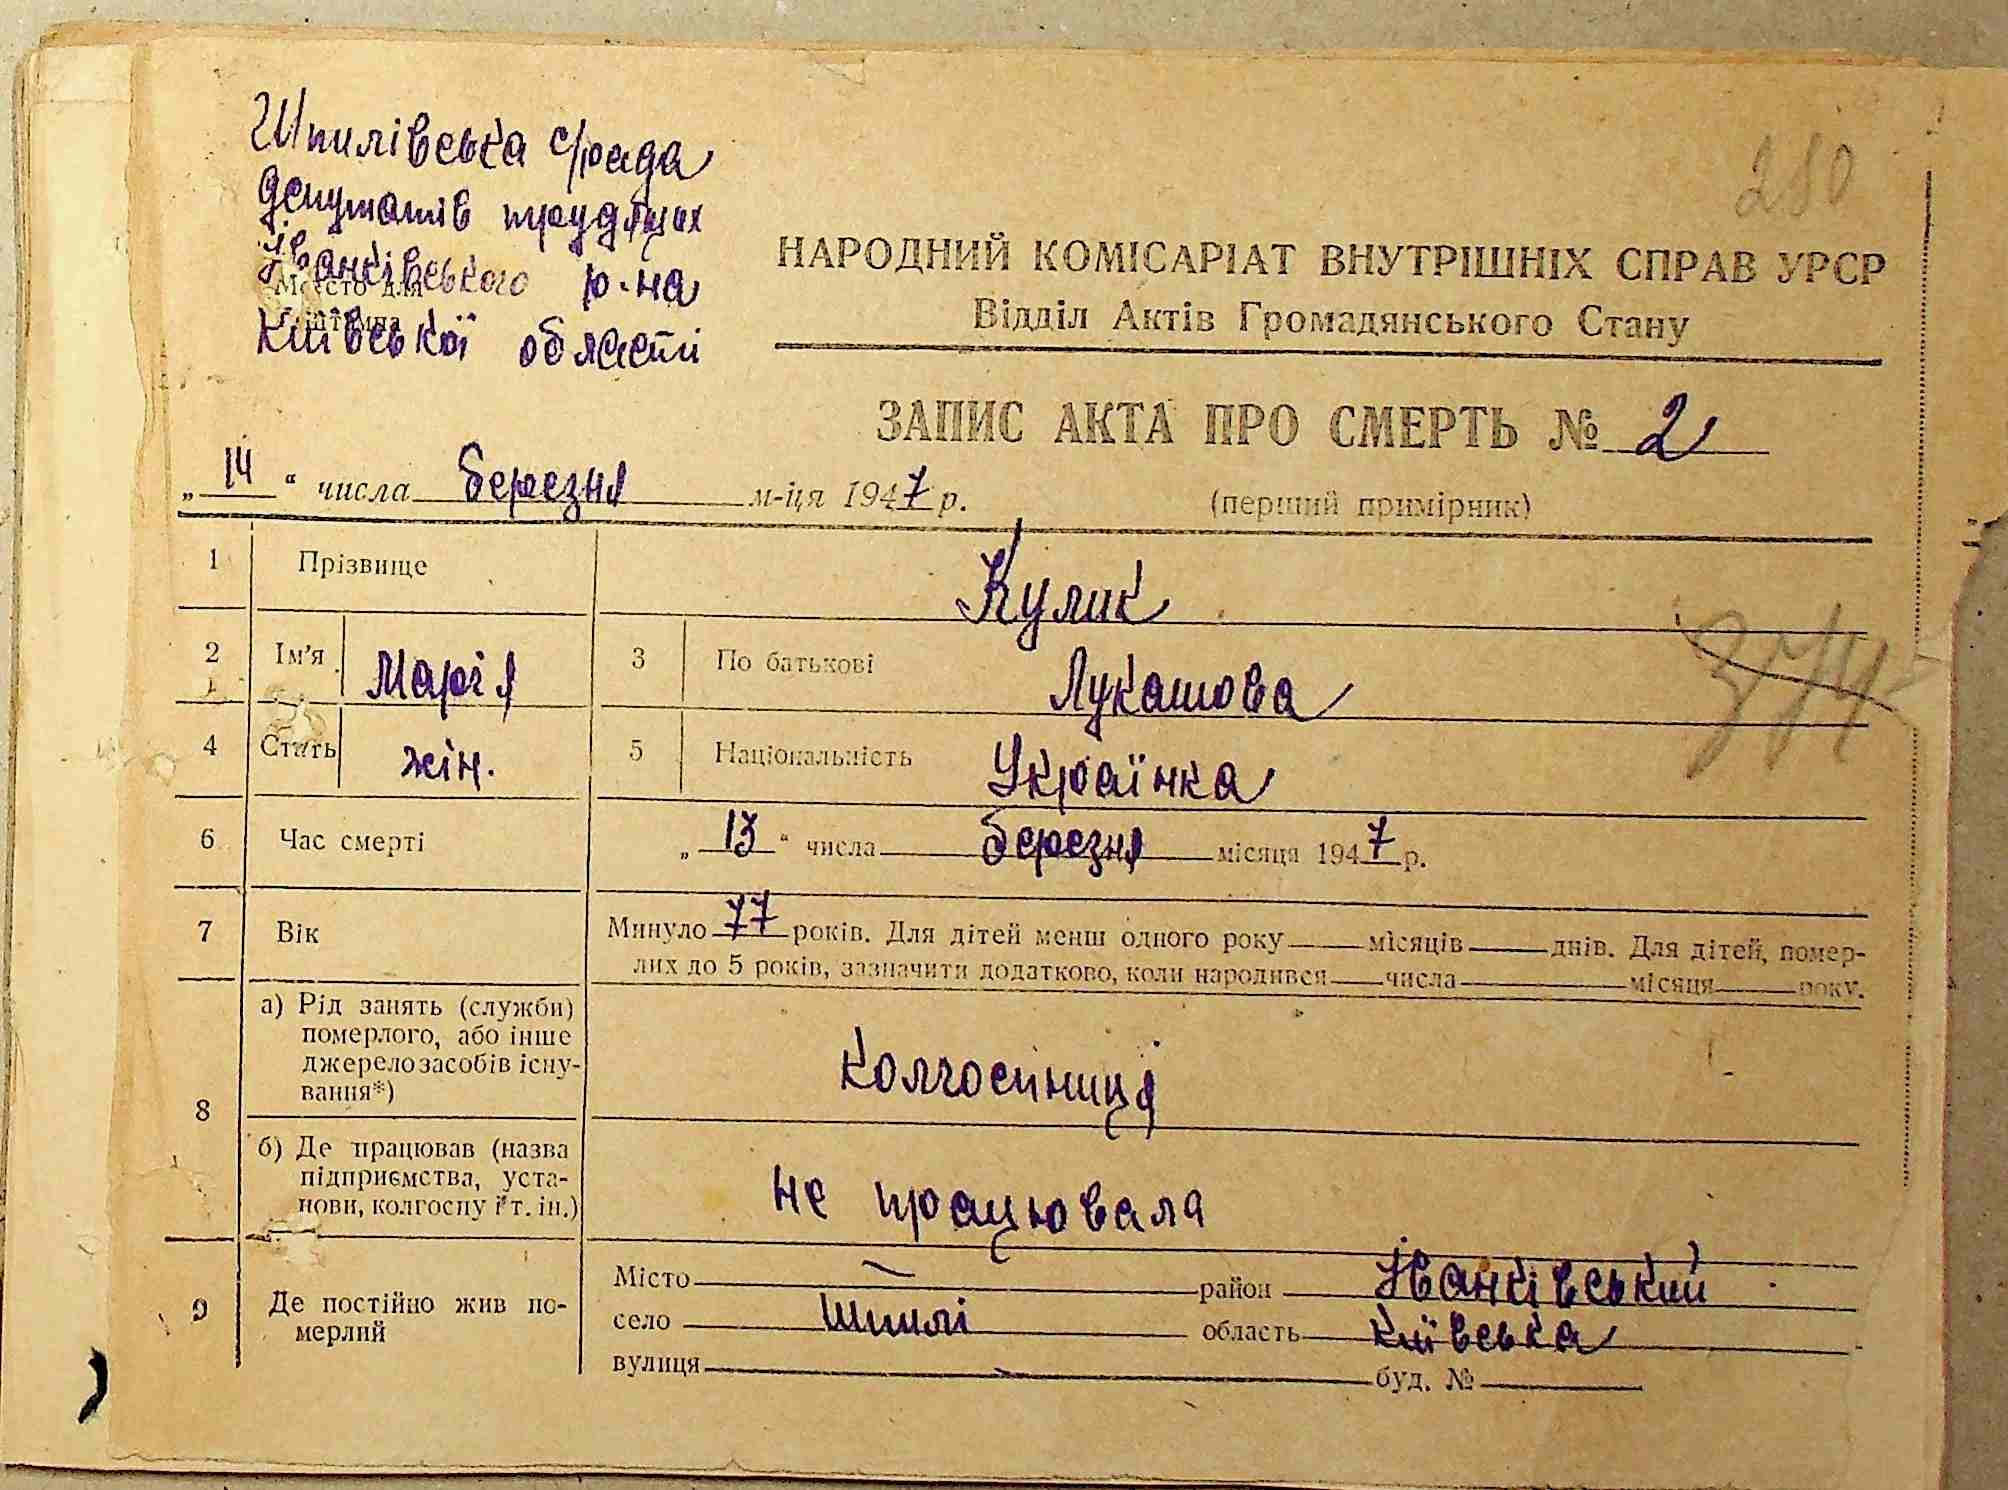 Шпилівська с/рада
депутатів трудящих
Іванківського р-на
Київської області
Місто для
штампа
280
НАРОДНИЙ КОМІСАРІАТ ВНУТРІШНІХ СПРАВ УРСР
Відділ Актів Громадянського Стану
ЗАПИС АКТА ПРО СМЕРТЬ № 2
„ 14 “ числа березня м-ця 1947 р. (перший примірник)
1 Прізвище Кулик
2 Ім'я Марія 3 По батькові Лукашова
374
4 Стать жін. 5 Національність Українка
6 Час смерті „ 13 “ числа березня місяця 1947 р.
7 Вік Минуло 77 років. Для дітей менш одного року місяців днів. Для дітей, помер-
лих до 5 років, зазначити додатково, коли народився числа місяця року.
8 а) Рід занять (служби)
померлого, або інше
джерело засобів існу-
вання*) Колгоспниця
б) Де працював (назва
підприємства, уста-
нови, колгоспу і т. ін.) не працювала
9 Де постійно жив по-
мерлий
Місто — район Іванківський
село Шпилі область Київська
вулиця — буд. №